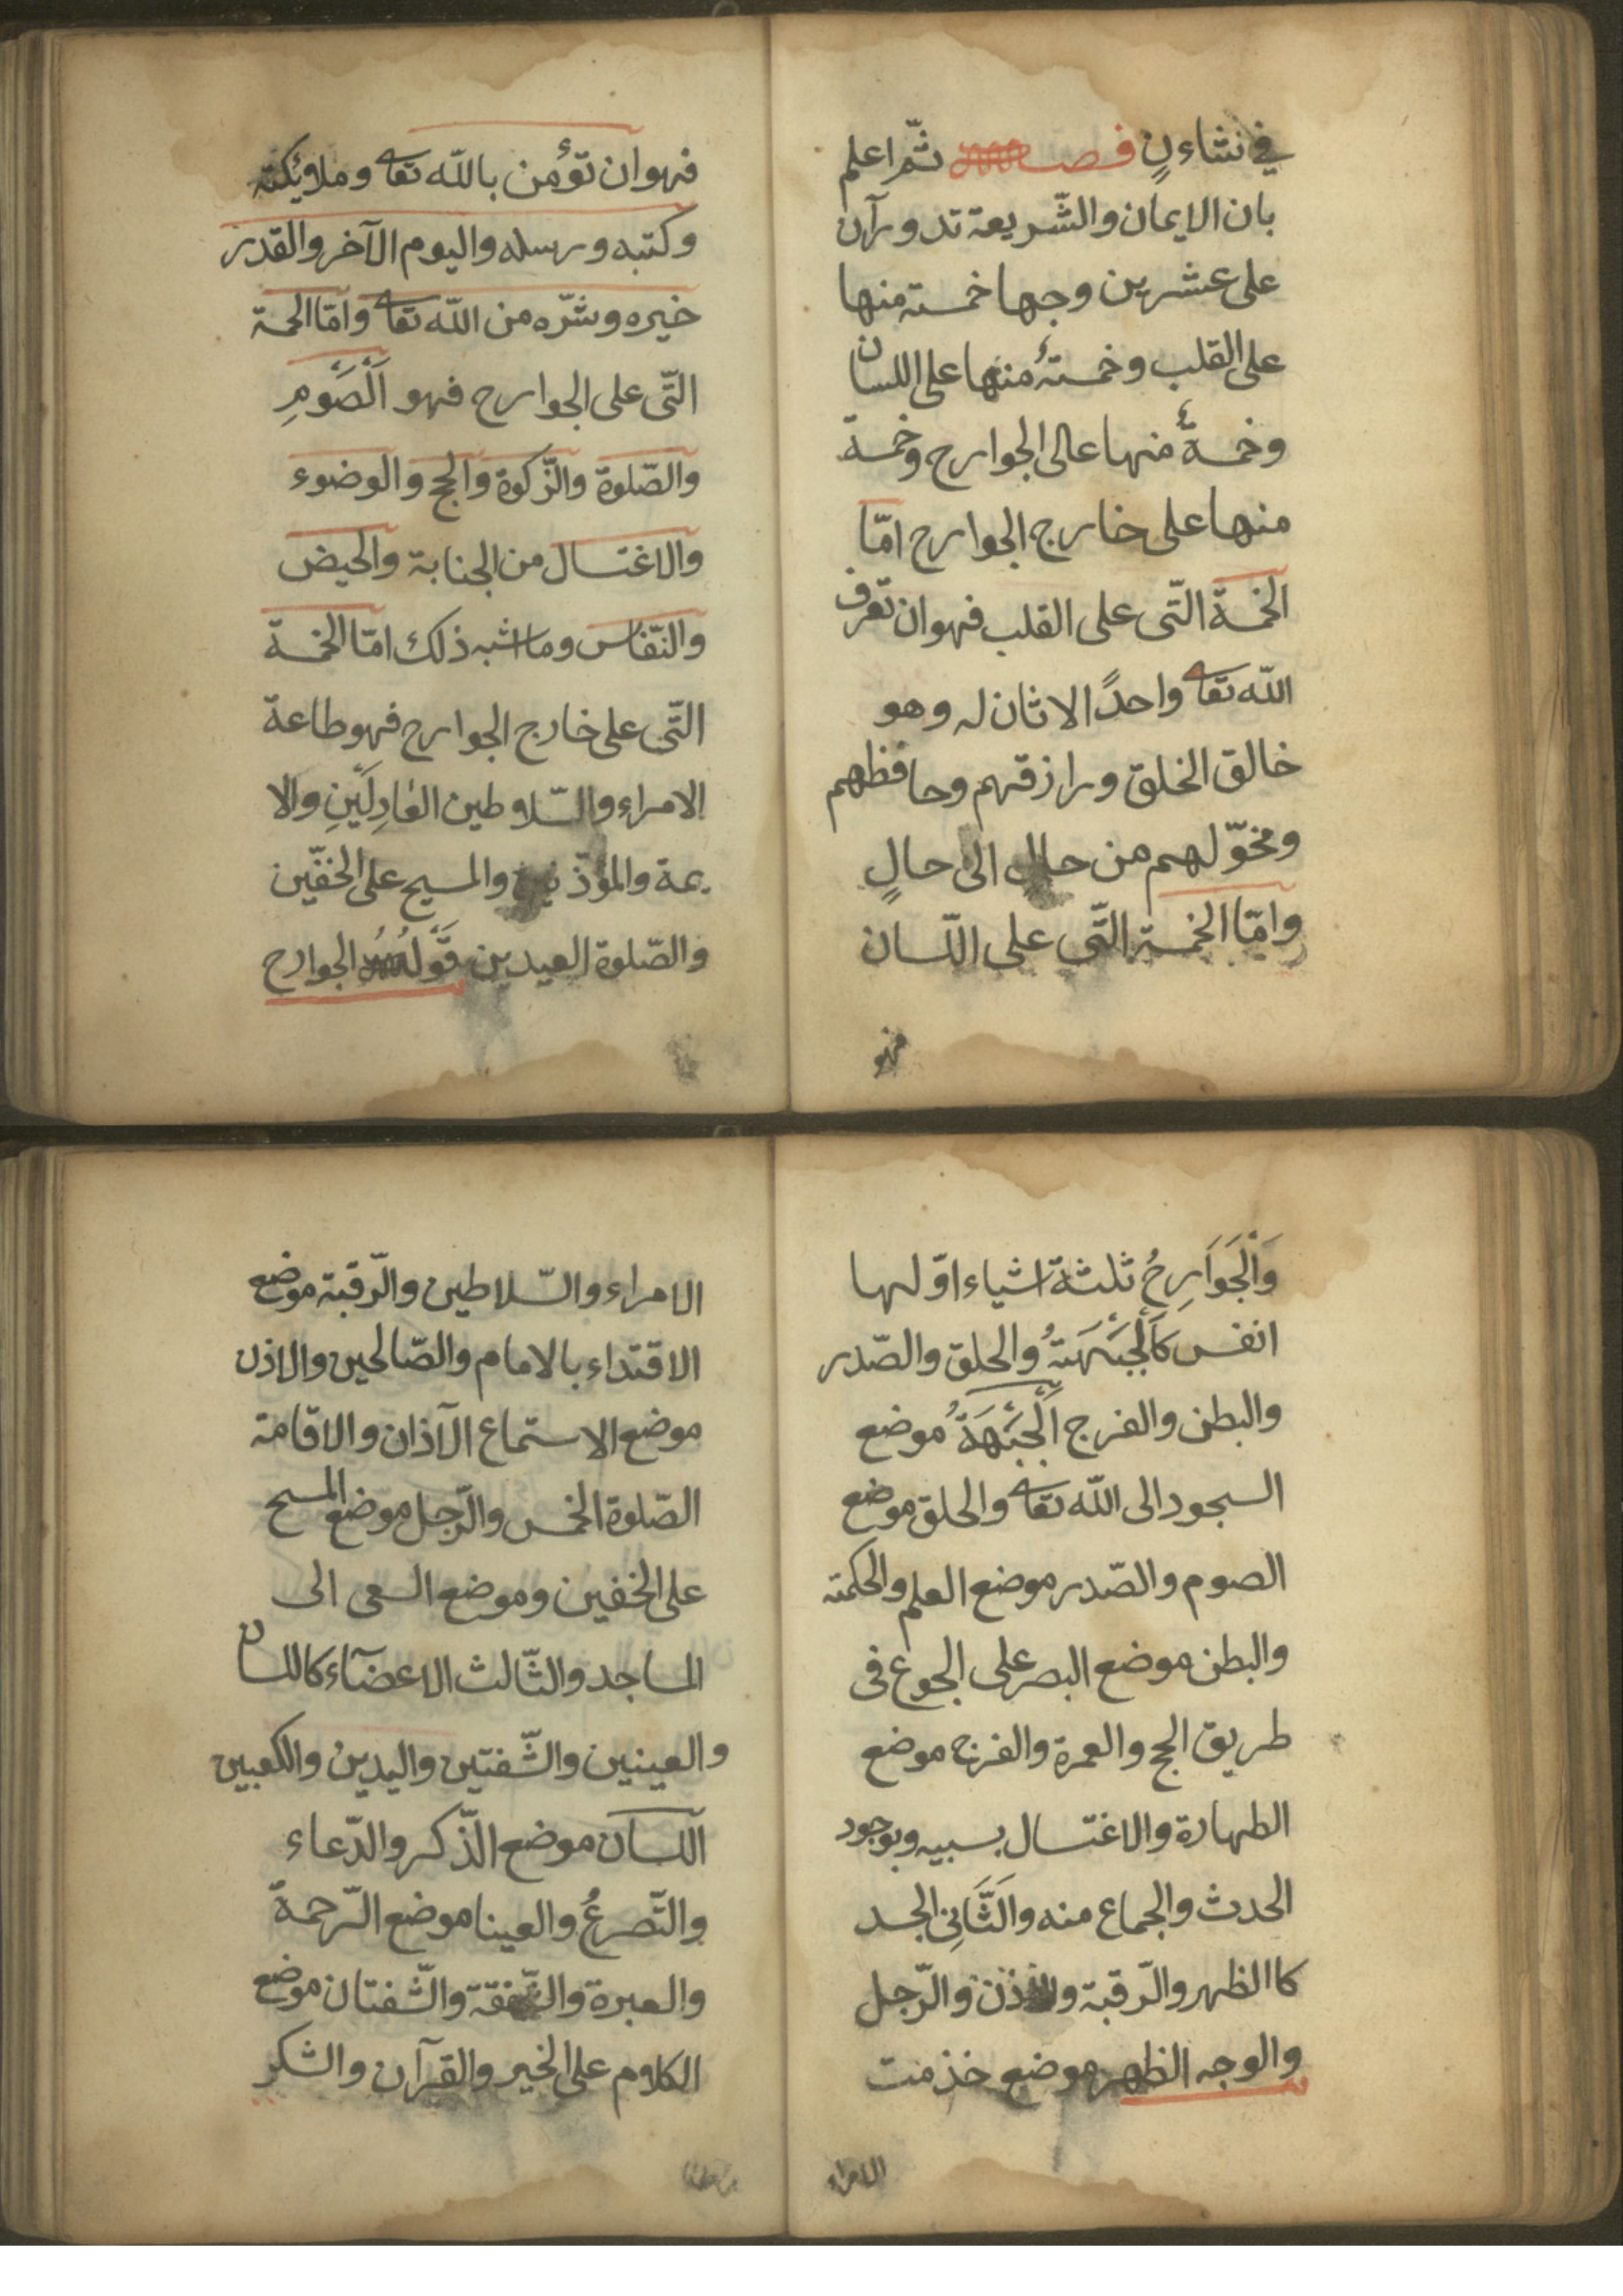 في نشاءنٍ فصـــــل ثمّ اعلم
بان الايمان والشّريعة تدورآن
على عشرين وجها خمسة منها
على القلب وخمسةٌ منها على اللسان
وخمسةٌ منها عالى الجوارح وخمسة
منها على خارج الجوارح امّا
الخمسة الّتى على القلب فهو ان تعرف
اللّه تعا واحدًا لا ثان له وهو
خالق الخلق ورازقهم وحافظهم
ومخوّلهم من حال الى حالٍ
وامّا الخمسة الّتى على اللّسان
فهو
فهو ان تؤمن باللّه تعا وملائكته
وكتبه ورسله واليوم الآخر والقدر
خيره وشرّه من اللّه تعا وامّا الخمسة
الّتى على الجوارح فهو اَلْصَّوْمِ
والصّلوة والزّكوة والحج والوضوء
والاغتسال من الجنابة والحيض
والنّفاس وما اشبه ذلك امّا الخمسة
الّتى على خارج الجوارح فهو طاعة
الامراء والسّلاوطين العٰادِلَيْنِ والا
يمة والمؤذنين والمسيح على الخفّين
والصّلوة العيدين قَوْلُهُ الجوارح
وَاَلْجَوَارِحُ ثلثة اشياء اوّلها
انفس كَاَلْجَبْهَتهُ والحلق والصّدر
والبطن والفرج اَلْجَبْهَةُ موضع
السجود الى اللّه تعا والحلق موضع
الصوم والصّدر موضع العلم والحكمته
والبطن موضع البصر على الجوع فى
طريق الحج والعمرة والفرج موضع
الطهارة والاغتسال بسببه وبوجود
الحدث والجماع منه وَاَلثَّانِى الجسد
كا الظهر والرّقبة والاذن والرّجل
والوجه الظهر موضع خذمت
الامراء
الامراء والسّلاطين والرّقبة موضع
الاقتداء بالامام والصّالحين والاذن
موضع الاستماع الآذان والاقامة
الصّلوة الخمس والرّجل موضع المسح
على الخفين وموضع السعى الى
المساجد والثّالث الاعضآء كاللسان
والعينين والشّفتين واليدين والكعبين
اللسان موضع الذّكر والدّعاء
والتّصرعُ والعينا موضع الرّحمة
والعبرة والشّفقة والشّفتان موضع
الكلاوم على الخير والقرآن والشكر